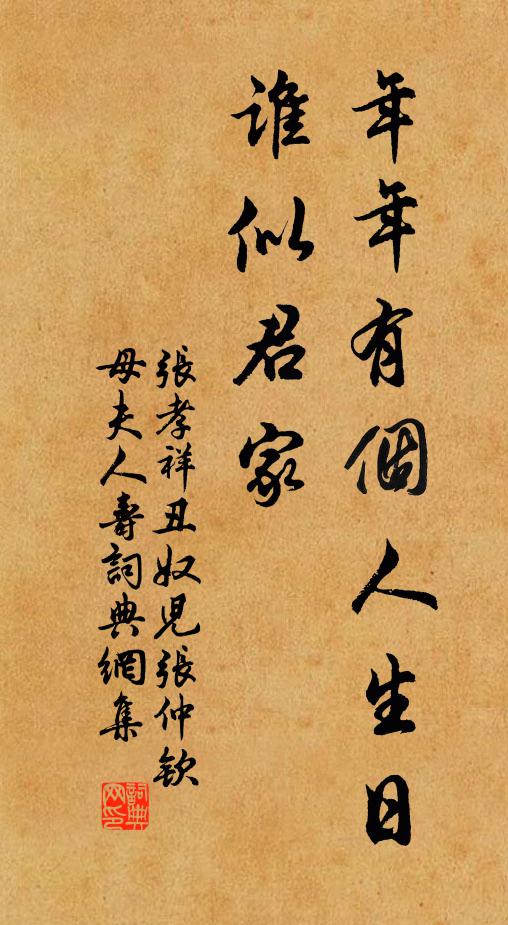 年年有個人生日
誰似君家
張孝祥丑奴兒張仲欽
母夫人壽詞典網集
詞典網印